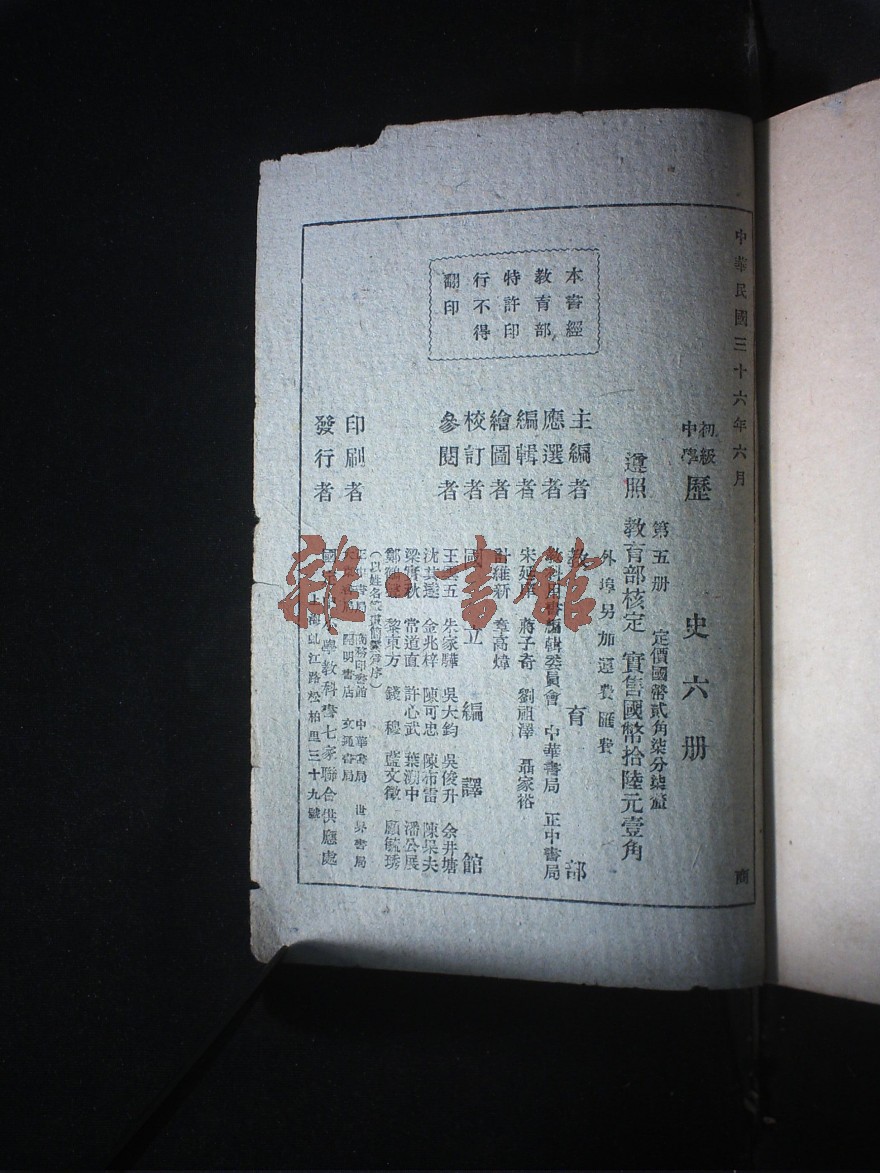 中華民國三十六年六月
商
初級
中學
歷史六册
第五册 定價國幣貳角柒分柒釐
遵照教育部核定 實售國幣拾陸元壹角
外埠另加運費匯費
本書經
教育部
特許印
行不得
翻印
主編者 教育部
應選者 編輯委員會 中華書局 正中書局
編輯者 蔣子奇 劉祖澤 聶家裕
繪圖者 計維新 章高煒
校訂者 國立編譯館
參閱者 王雲五 朱家驊 吳大鈞 吳俊升 余井塘
沈其達 金兆梓 陳可忠 陳布雷 陳杲夫
梁實秋 常道直 許心武 葉溯中 潘公展
黎東方 錢穆 藍文徵 顧毓琇
印刷者 正中書局 商務印書館 中華書局 世界書局
開明書店 文通書局
發行者 國定中小學教科書七家聯合供應處
上海虬江路松柏里三十九號
雜·書館